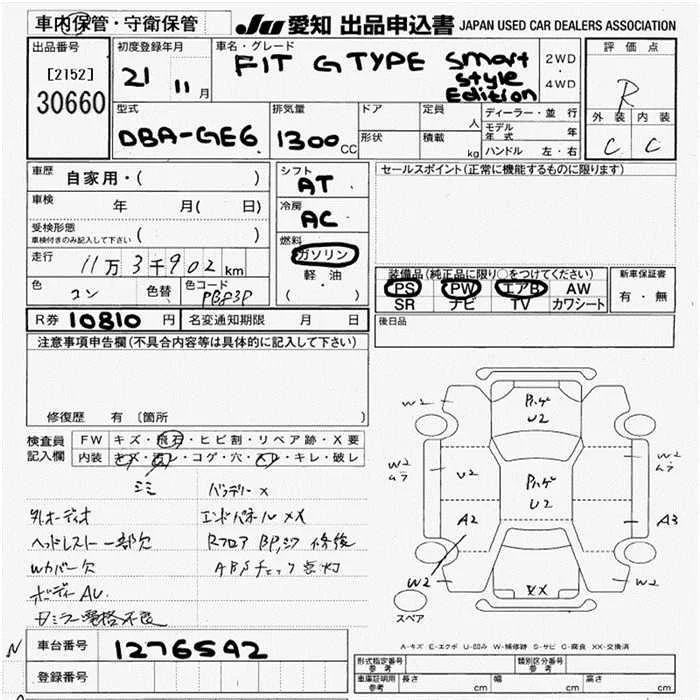 車内保管・守衛保管
JU 愛知 出品申込書 JAPAN USED CAR DEALERS ASSOCIATION
出品番号
[2152]
30660
初度登録年月
21 11 月
車名・グレード
FIT G TYPE Smart
Style
Edition
2WD
・
4WD
評価点
R
外装 内装
C C
型式
DBA-GE6
排気量
1300 CC
ドア
形状
定員
人
積載
kg
ディーラー・並行
モデル年式 年
ハンドル 左・右
車歴 自家用・( )
車検 年 月( 日)
受検形態
車検付きのみ記入して下さい ( )
走行 11万3千902 km
色 コン 色替 色コード PBP3P
シフト
AT
冷房
AC
燃料
ガソリン
軽・油
( ・ )
セールスポイント(正常に機能するものに限ります)
装備品(純正品に限り○をつけてください)
PS PW エアB AW
SR ナビ TV カワシート
新車保証書
有・無
R券 10810 円 名変通知期限 月 日
後日品
注意事項申告欄(不具合内容等は具体的に記入して下さい)
修復歴 有〔箇所 〕
検査員
記入欄
FW キズ・飛石・ヒビ割・リペア跡・X要
内装 キズ・汚レ・コゲ・穴・スレ・キレ・破レ
シミ バッテリーX
外オーディオ エンドパネルXX
ヘッドレスト一部欠 Rフロア BPシフ 修後
Wカバー欠 ABSチェック点灯
ボディーAU
車台番号 1276542
登録番号
W2
W2
ムラ
U2
A2
W2
U2
U2
XX
W2
W2
ムラ
A3
W2
スペア
A-キズ E-エクボ U-凹み W-補修跡 S-サビ C-腐食 XX-交換済
形式指定番号
参考
類別区分番号
参考
車庫証明用
参考
長さ cm 幅 cm 高さ cm